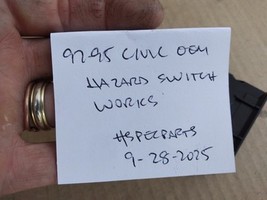 92-95 CIVIC OEM
HAZARD SWITCH
WORKS
#SPECPARTS
9-28-2025